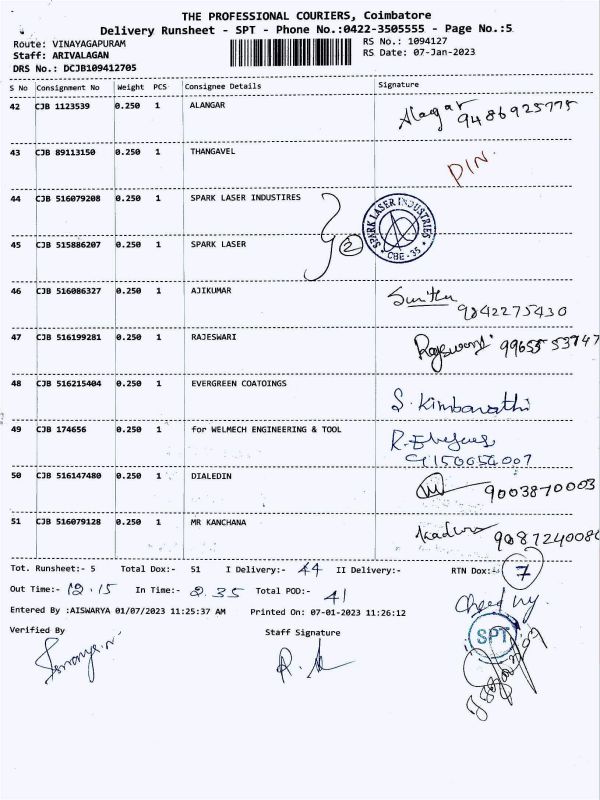 THE PROFESSIONAL COURIERS, Coimbatore
Delivery Runsheet - SPT - Phone No.:0422-3505555 - Page No.:5
Route: VINAYAGAPURAM RS No.: 1094127
Staff: ARIVALAGAN RS Date: 07-Jan-2023
DRS No.: DCJB109412705
S No Consignment No Weight PCS Consignee Details Signature
42 CJB 1123539 0.250 1 ALANGAR Alagar 9486925775
43 CJB 89113150 0.250 1 THANGAVEL DIN.
44 CJB 516079208 0.250 1 SPARK LASER INDUSTIRES
SPARK LASER INDUSTRIES
CBE-35
2
45 CJB 515886207 0.250 1 SPARK LASER
46 CJB 516086327 0.250 1 AJIKUMAR 9842275430
47 CJB 516199281 0.250 1 RAJESWARI Rajeswari 9965553747
48 CJB 516215404 0.250 1 EVERGREEN COATOINGS S. Kimbarathi
49 CJB 174656 0.250 1 for WELMECH ENGINEERING & TOOL
9150054007
50 CJB 516147480 0.250 1 DIALEDIN 9003870003
51 CJB 516079128 0.250 1 MR KANCHANA
Tot. Runsheet:- 5 Total Dox:- 51 I Delivery:- 44 II Delivery:- RTN Dox: 7
Out Time:- 12.15 In Time:- 2.35 Total POD:- 41
Entered By :AISWARYA 01/07/2023 11:25:37 AM Printed On: 07-01-2023 11:26:12
Verified By Staff Signature
SPT